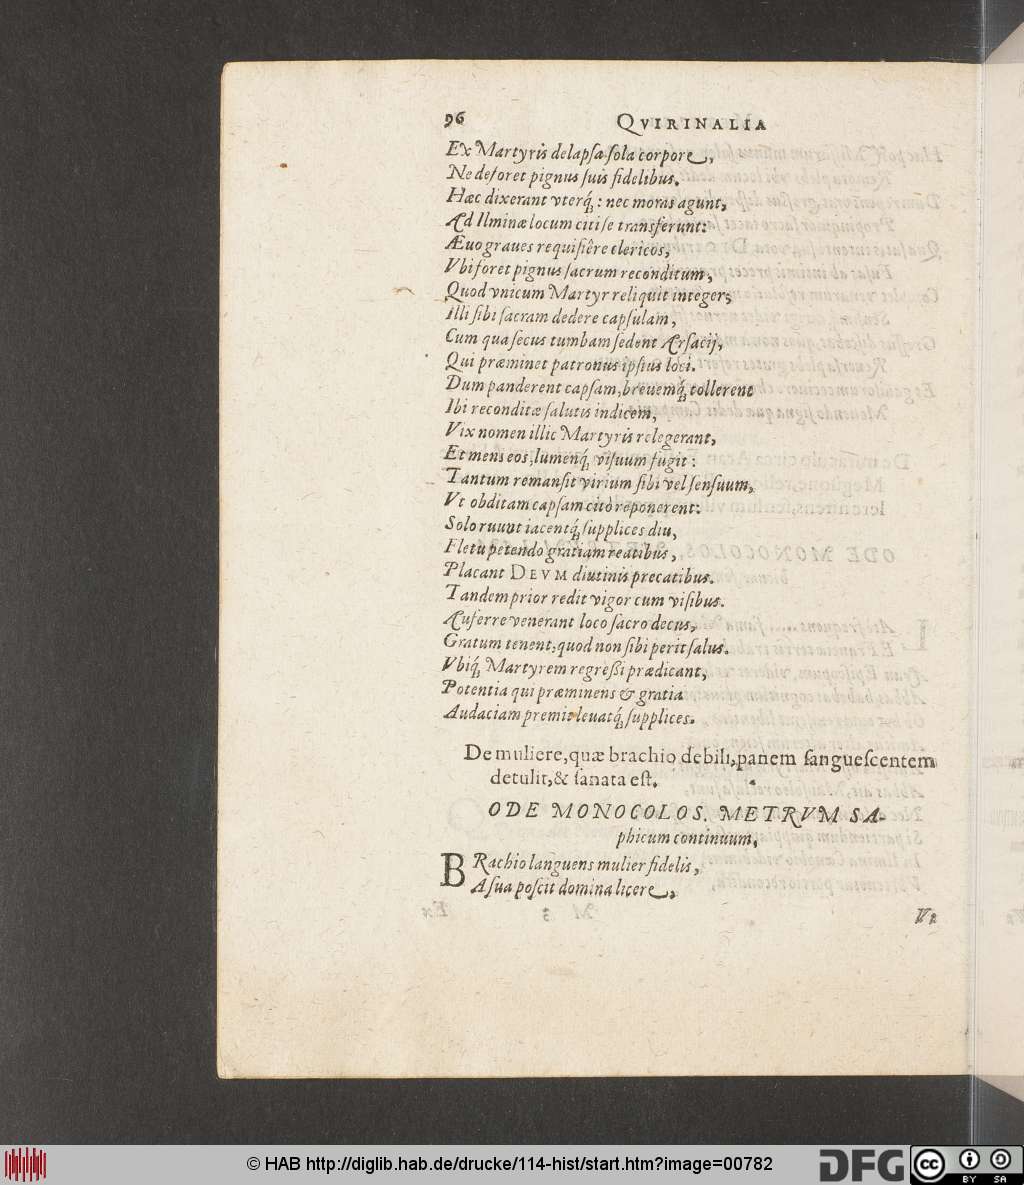 96 QVIRINALIA
Ex Martyris delapsa sola corpore,
Ne deforet pignus suis fidelibus.
Hæc dixerant vterq́; : nec moras agunt,
Ad Ilminæ locum citi se transferunt:
Æuo graues requisiêre clericos,
Vbi foret pignus sacrum reconditum,
Quod vnicum Martyr reliquit integer;
Illi sibi sacram dedere capsulam,
Cum qua secus tumbam sedent Arsacij,
Qui præminet patronus ipsius loci.
Dum panderent capsam, breuemq́; tollerent
Ibi reconditæ salutis indicem,
Vix nomen illic Martyris relegerant,
Et mens eos, lumenq́; visuum fugit:
Tantum remansit virium sibi vel sensuum,
Vt obditam capsam citò reponerent:
Solo ruunt iacentq́; supplices diu,
Fletu petendo gratiam reatibus,
Placant DEVM diutinis precatibus.
Tandem prior redit vigor cum visibus.
Auferre venerant loco sacro decus,
Gratum tenent, quod non sibi perit salus.
Vbiq́; Martyrem regressi prædicant,
Potentia qui præminens & gratia
Audaciam premit leuatq́; supplices.
De muliere, quæ brachio debili, panem sanguescentem
detulit, & sanata est.
ODE MONOCOLOS. METRVM SA-
phicum continuum.
BRachio languens mulier fidelis,
A sua poscit domina licere,
Vt
© HAB http://diglib.hab.de/drucke/114-hist/start.htm?image=00782
DFG
cc BY SA